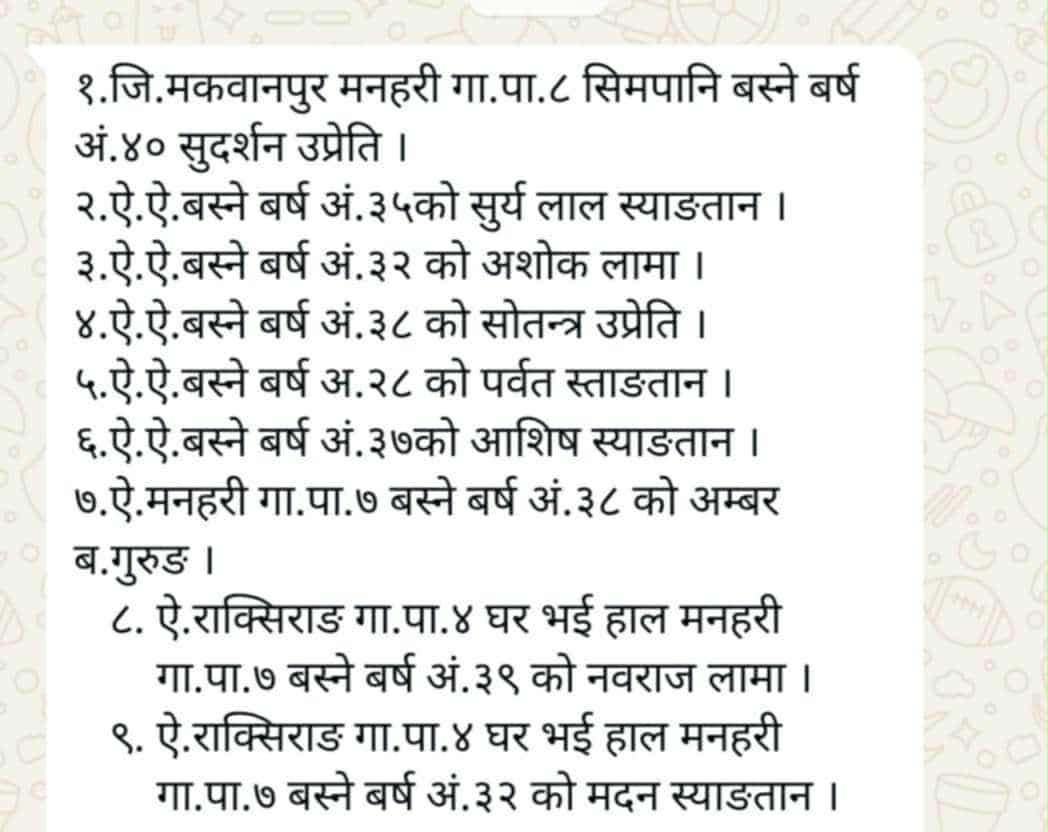 १.जि.मकवानपुर मनहरी गा.पा.८ सिमपानि बस्ने बर्ष
अं.४० सुदर्शन उप्रेति ।
२.ऐ.ऐ.बस्ने बर्ष अं.३५को सुर्य लाल स्याङतान ।
३.ऐ.ऐ.बस्ने बर्ष अं.३२ को अशोक लामा ।
४.ऐ.ऐ.बस्ने बर्ष अं.३८ को सोतन्त्र उप्रेति ।
५.ऐ.ऐ.बस्ने बर्ष अ.२८ को पर्वत स्ताङतान ।
६.ऐ.ऐ.बस्ने बर्ष अं.३७को आशिष स्याङतान ।
७.ऐ.मनहरी गा.पा.७ बस्ने बर्ष अं.३८ को अम्बर
ब.गुरुङ ।
८. ऐ.राक्सिराङ गा.पा.४ घर भई हाल मनहरी
गा.पा.७ बस्ने बर्ष अं.३९ को नवराज लामा ।
९. ऐ.राक्सिराङ गा.पा.४ घर भई हाल मनहरी
गा.पा.७ बस्ने बर्ष अं.३२ को मदन स्याङतान ।